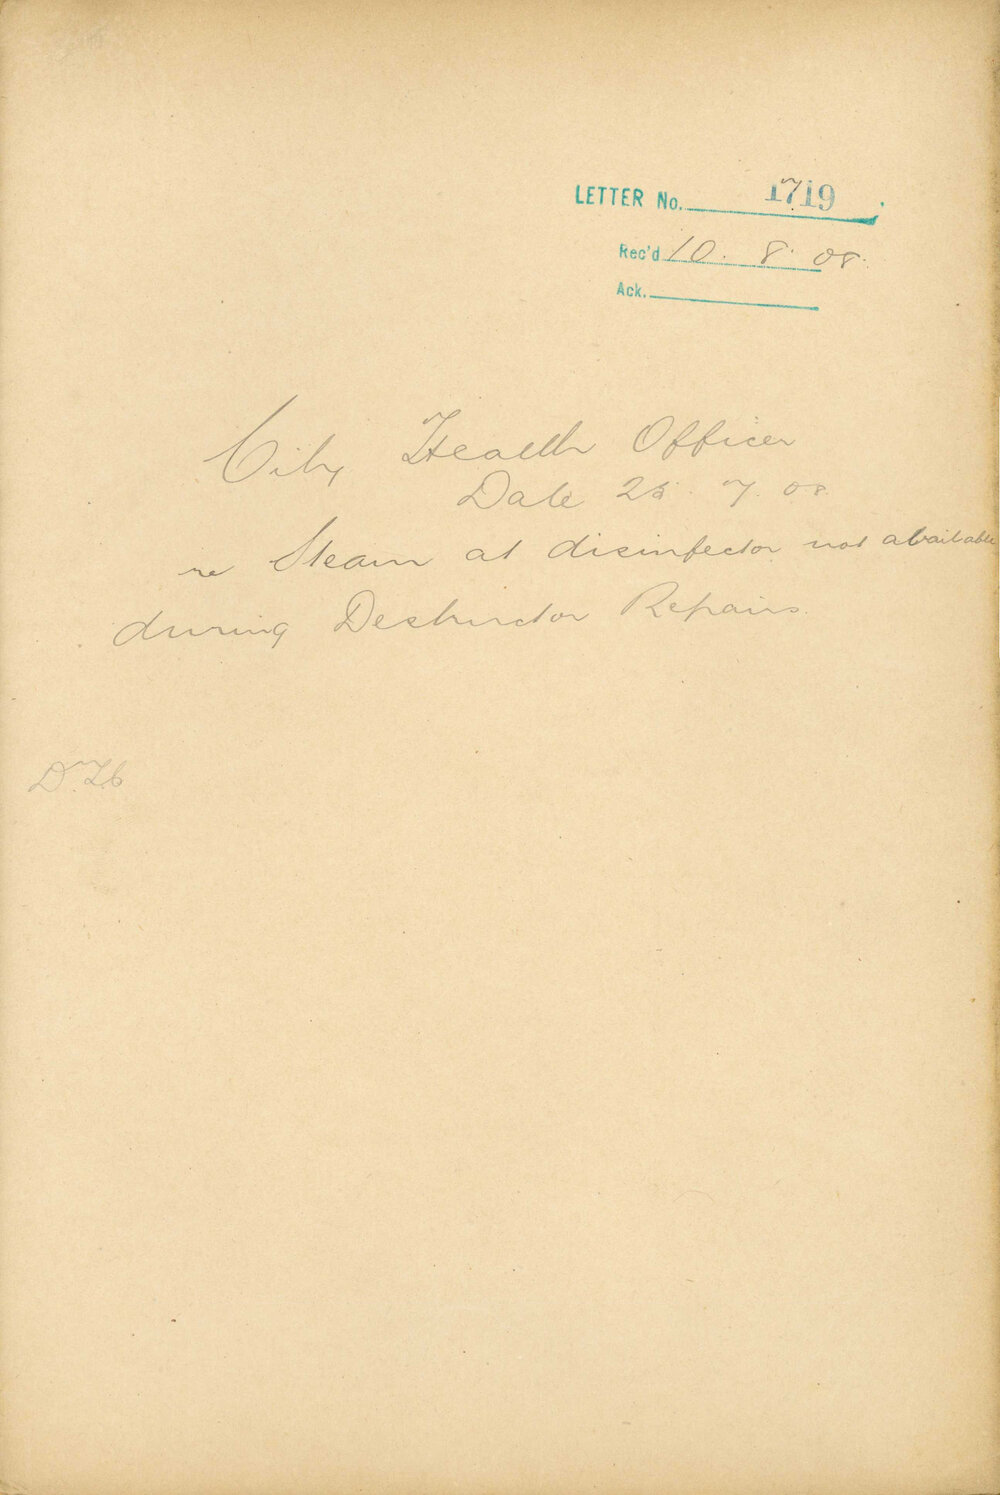 LETTER No. 1719
Rec'd 10. 8. 08.
Ack.
City Health Officer
Date 25. 7. 08.
re Steam at disinfector not available
during Destructor Repairs.